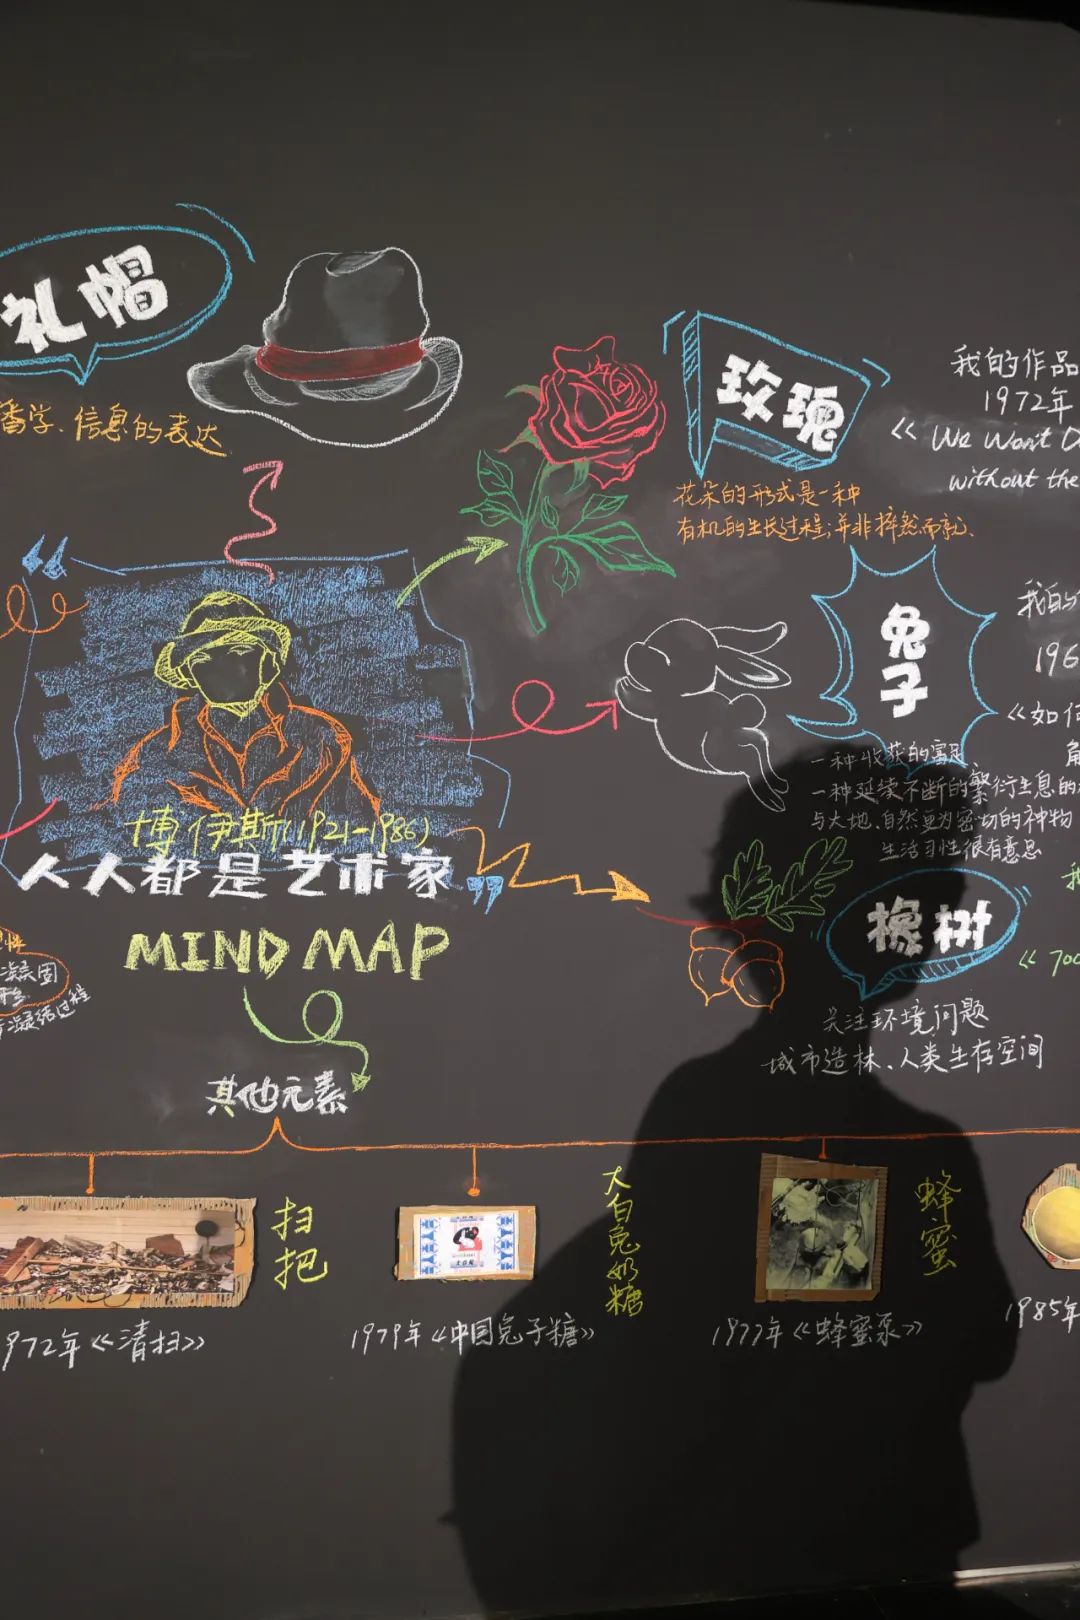 礼帽
播学、信息的表达
玫瑰
花朵的形式是一种
有机的生长过程;并非捽然而就.
我的作品
1972年
《We Won't D
without the
兔子
一种收获的富足
一种延续不断的繁衍生息的
与大地、自然更为密切的神物
生活习性很有意思
我的
196
《如何
博伊斯(1921-1986)
“人人都是艺术家”
MIND MAP
橡树
关注环境问题
城市造林、人类生存空间
《700
凝结过程
其他元素
扫把
972年《清扫》
大白兔奶糖
1979年《中国兔子糖》
蜂蜜
1977年《蜂蜜泵》
1985年